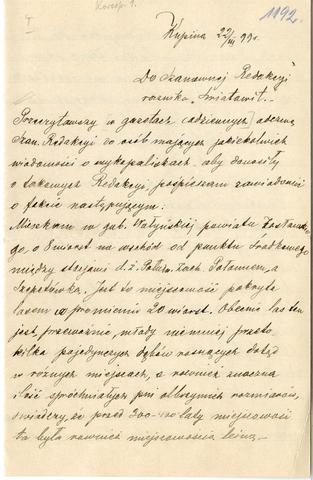 Koresp. 1.
I
1192.
Kupina 22/III 99 r.
Do Szanownej Redakcyi
rocznika „Światowit".
Przeczytawszy w gazetach (codziennych) odezwę
Szan. Redakcyi do osób mających jakiekolwiek
wiadomości o wykopaliskach aby donosiły
o takowych Redakcyi pośpieszam zawiadomić
o fakcie następującym:
Mieszkam w gub. Wołyńskiej powiatu Zasławskie-
go, o 8 wiorst na wschód od punktu środkowego
między stacjami d. ż. Połud. Zach. Połonnem, a
Szepetówką. Jest to miejscowość pokryta
lasem w promieniu 20 wiorst. Obecnie las ten
jest, przeważnie, młody niemniej przeto
kilka pojedynczych dębów rosnących dotąd
w różnych miejscach, a również znaczna
ilość spróchniałych pni olbrzymich rozmiarów,
świadczy, że przed 300-400 laty miejscowość
ta była również miejscowością leśną.